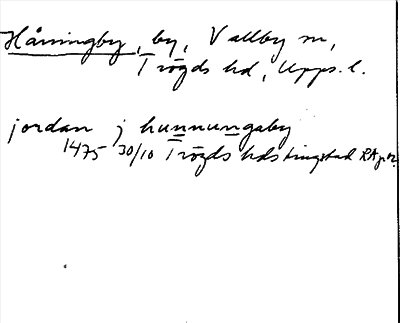 Hånningby, by, Vallby sn,
Trögds hd, Upps. l.
jordan j hunnungaby
1475 30/10 Trögds hds tingstad RA pr.